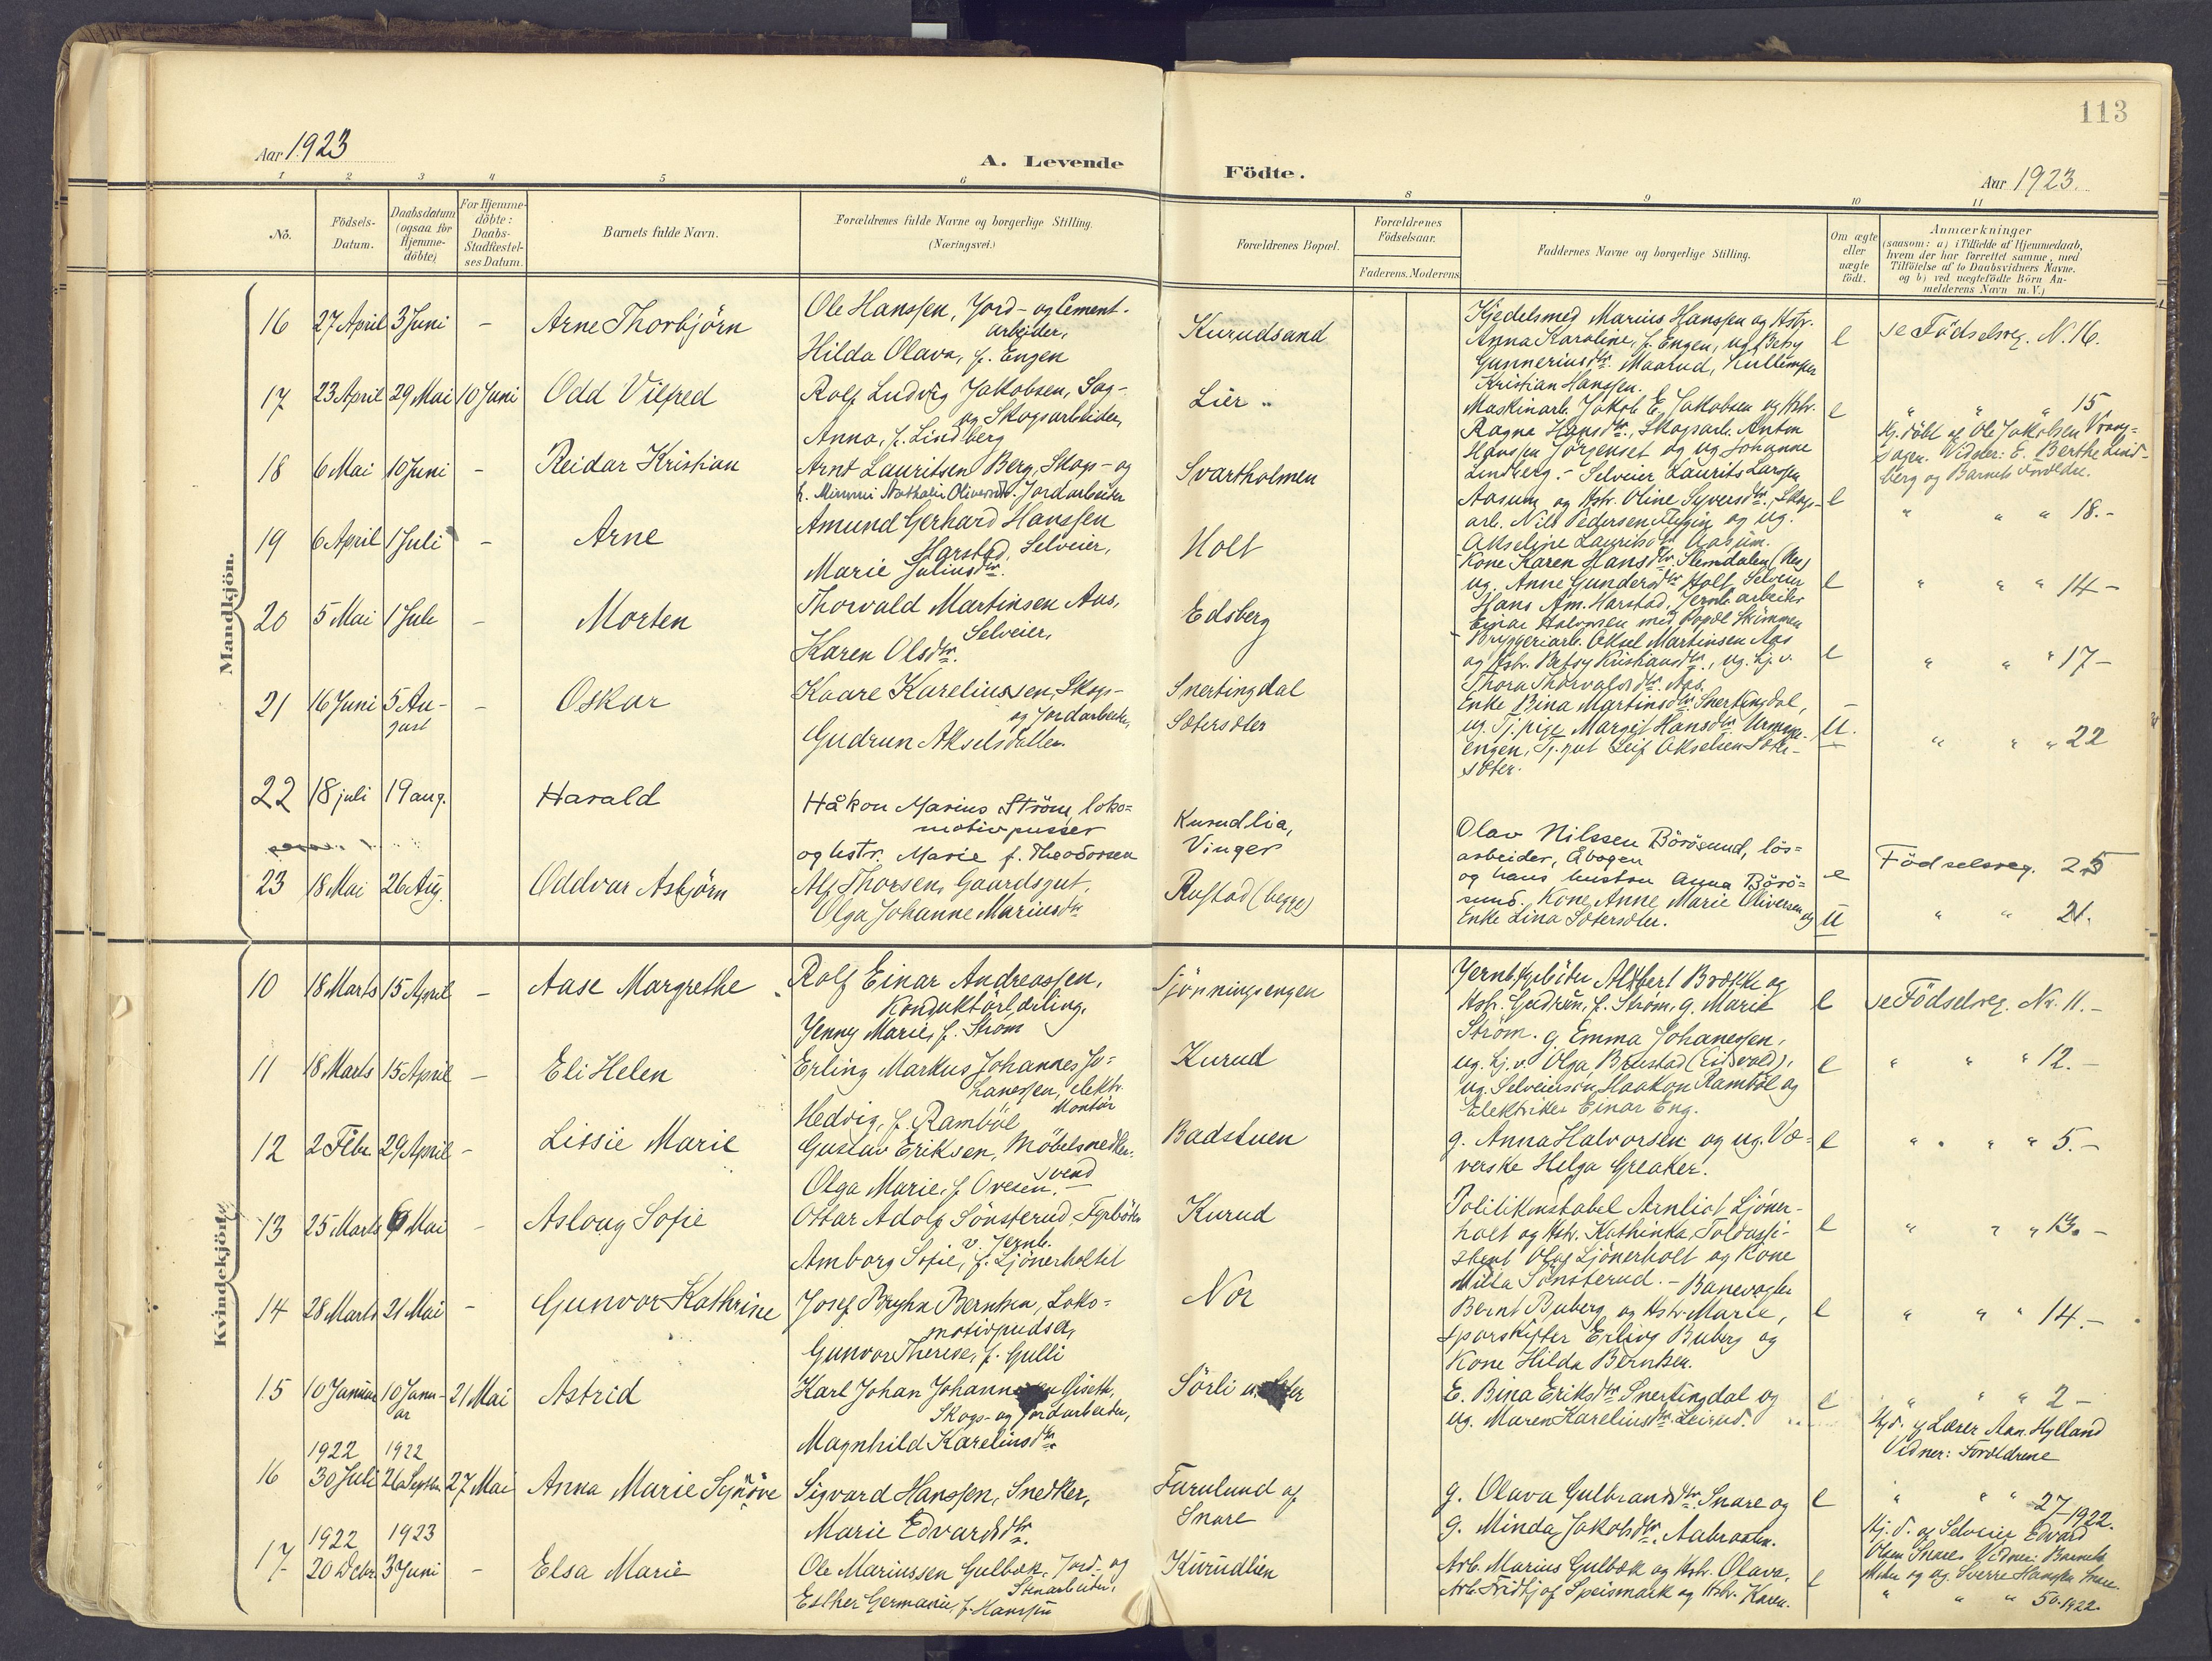 113
Aar 1923
A. Levende Födte.
Aar 1923.
1 2 3 4 5 6 8 9 10 11
No.
Födsels-Datum.
Daabsdatum (ogsaa for Hjemme-döbte).
For Hjemme-döbte: Daabs-Stadfæstel-ses Datum.
Barnets fulde Navn.
Forældrenes fulde Navne og borgerlige Stilling.
(Næringsvei.)
Forældrenes Bopæl.
Forældrenes Födselsaar.
Faderens. Moderens.
Faddernes Navne og borgerlige Stilling.
Om ægte eller uægte födt.
Anmærkninger
(saasom: a) i Tilfælde af Hjemmedaab,
hvem der har forrettet samme, med
Tilföielse af to Daabsvidners Navne.
og b) ved uægtefödte Börn An-
melderens Navn m. V.)
Mandkjön.
16 27 April 3 Juni - Arne Thorbjörn
Ole Hanssen, Jord- og Cement-
arbeider,
Hilda Olava, f. Engen
Kurudsand
Kjedelsmed Marius Hanssen og Hstr.
Anna Karoline, f. Engen, ug. Betsy
Gunneriusdtr. Maarud,
Kristian Hanssen.
e
se Födselsreg. N. 16.
17 23 April 29 Mai 10 Juni Odd Vilfred
Rolf Ludvig Jakobsen, Sag-
og Skogsarbeider,
Anna, f. Lindberg
Lier
Maskinarb. Jakob E. Jakobsen og Hstr.
Ragna Hansdtr., Skogsarb. Anton
Hanssen Jörgenset og ug. Johanne
Lindberg. -
e
" " " 15
Hj. döbt af Ole Jakobsen Vrang-
Vidner: E. Berthe Lind-
berg og Barnets Forældre.
18 6 Mai 10 Juni - Reidar Kristian
Arnt Lauritsen Berg, Skogs- og
Jordarbeider
Svartholmen
Selveier Laurits Larssen
Aasum og Hstr. Oline Syversdtr., Skogs-
arb. Nils Pedersen og ug.
e
" " " 18.-
19 6 April 1 Juli - Arne
Amund Gerhard Hanssen
Harstad, Selveier,
Marie Juliusdtr.
Holt
Kone Karen Hansdtr. (Nes)
ug. Anne Gundersdtr. Holt, Selveier
Hans Am. Harstad,
e
" " " 14 -
20 5 Mai 1 Juli - Morten
Thorvald Martinsen Aas,
Selveier,
Karen Olsdtr.
Edsberg
Bryggeriarb. Aksel Martinsen Aas
og Hstr. Betsy Kristiansdtr., ug. hj. v.
Thora Thorvaldsdtr. Aas.
e
" " " 17 -
21 16 Juni 5 August - Oskar
Kaare Kareliussen, Skogs-
og Jordarbeider,
Gudrun Akselsdatter.
Snertingdal
Sætersæter
Enke Bina Martinsdtr. Snertingdal,
ug. Tj. pige Margit Hansdtr.
engen, Tj. gut Leif Akselsen Sæter-
sæter.
U.
" " " 22
22 18 juli 19 aug. Harald
Håkon Marius Ström, loko=
motivpusser
og hstr. Marie f. Theodorsen
Kurudlia,
Vinger
Olav Nilssen Börösund, lös=
arbeider, Åbogen
og hans hustru Anna Börö=
sund.
e
Födselsreg. 25
23 18 Mai 26 Aug. Oddvar Asbjörn
Alf Thorsen, Gaardsgut,
Olga Johanne Mariusdtr
Rustad (begge)
Kone Anne Marie Oliversen og
Enke Lina Sætersæter.
U
" " 21.
Kvindekjön.
10 18 Marts 15 April - Aase Margrethe
Rolf Einar Andreassen,
Konduktörlærling,
Jenny Marie, f. Ström
Sjönningsengen
Hstr. Gudrun, f. Ström, g. Marie
Ström. g. Emma Johanessen,
e
se Födselsreg. Nr. 11.-
11 18 Marts 15 April - Eli Helen
Erling Markus Johannes Jo=
hanessen, elektr.
Montör
Hedvig, f. Ramböl
Kurud
ug. hj. v. Olga Brustad (Eidsvold),
ug. Selveiersön Haakon Ramböl og
Elektriker Einar Eng.
e
" " " 12.-
12 2 Febr. 29 April - Lissie Marie
Gustav Eriksen, Möbelsnedker-
svend
Olga Marie, f. Ovesen.
Badstuen
g. Anna Halvorsen og ug. Væ-
verske Helga Greaker.
e
" " " " 5.-
13 25 Marts 6 Mai - Aslaug Sofie
Ottar Adolf Sönsterud, Fyrböter
v. Jernb.
Amborg Sofie, f. Ljönerholtet
Kurud
Politikonstabel Arnliot Ljöner-
holt og Hstr. Kathinka, Toldassi-
stent Olaf Ljönerholt og Kone
Milla Sönsterud. -
e
" " " 13. -
14 28 Marts 21 Mai - Gunvor Kathrine
Josef Bryhn Berntsen, Loko=
motivpudser,
Gunvor Therese, f. Gulli
Nor
Banevogter
Bernt Buberg og Hstr. Marie,
Sporskifter Erling Buberg og
Kone Hilda Berntsen.
e
" " " 14.-
15 10 Januar 10 Januar 21 Mai Astrid
Karl Johan Giseth,
Skogs- og Jordarbeider,
Magnhild Kareliusdtr.
Sörli
E. Bina Eriksdtr. Snertingdal og
ug. Maren Kareliusdtr. Leirud.
e
" " " 2 -
Hjd. af Lærer Aan. Hylland
Vidner: Forældrene
16 1922 30 Juli 1922 26 Septbr. 27 Mai Anna Marie Synöve
Sigvard Hanssen, Snedker,
Marie Edvardsdtr.
Furulund af
Snare
g. Olava Gulbrandsdtr. Snare og
g. Minda Jakobsdtr.
e
" " " 27-1922.
Hj. d. af Selveier Edvard
Olsen Snare. Vidner: Barnets
Moder og ug. Sverre Hanssen Snare.
17 1922 20 Decbr. 1923 3 Juni - Elsa Marie
Ole Mariussen Gulbæk, Jord- og
Stenarbeider,
Esther Germanie, f. Hanssen
Kurudlien
Arb. Marius Gulbæk og Hstr. Olava,
Arb. Fridtjof Speismark og Hstr. Karen.
e
" " " 50.1922.